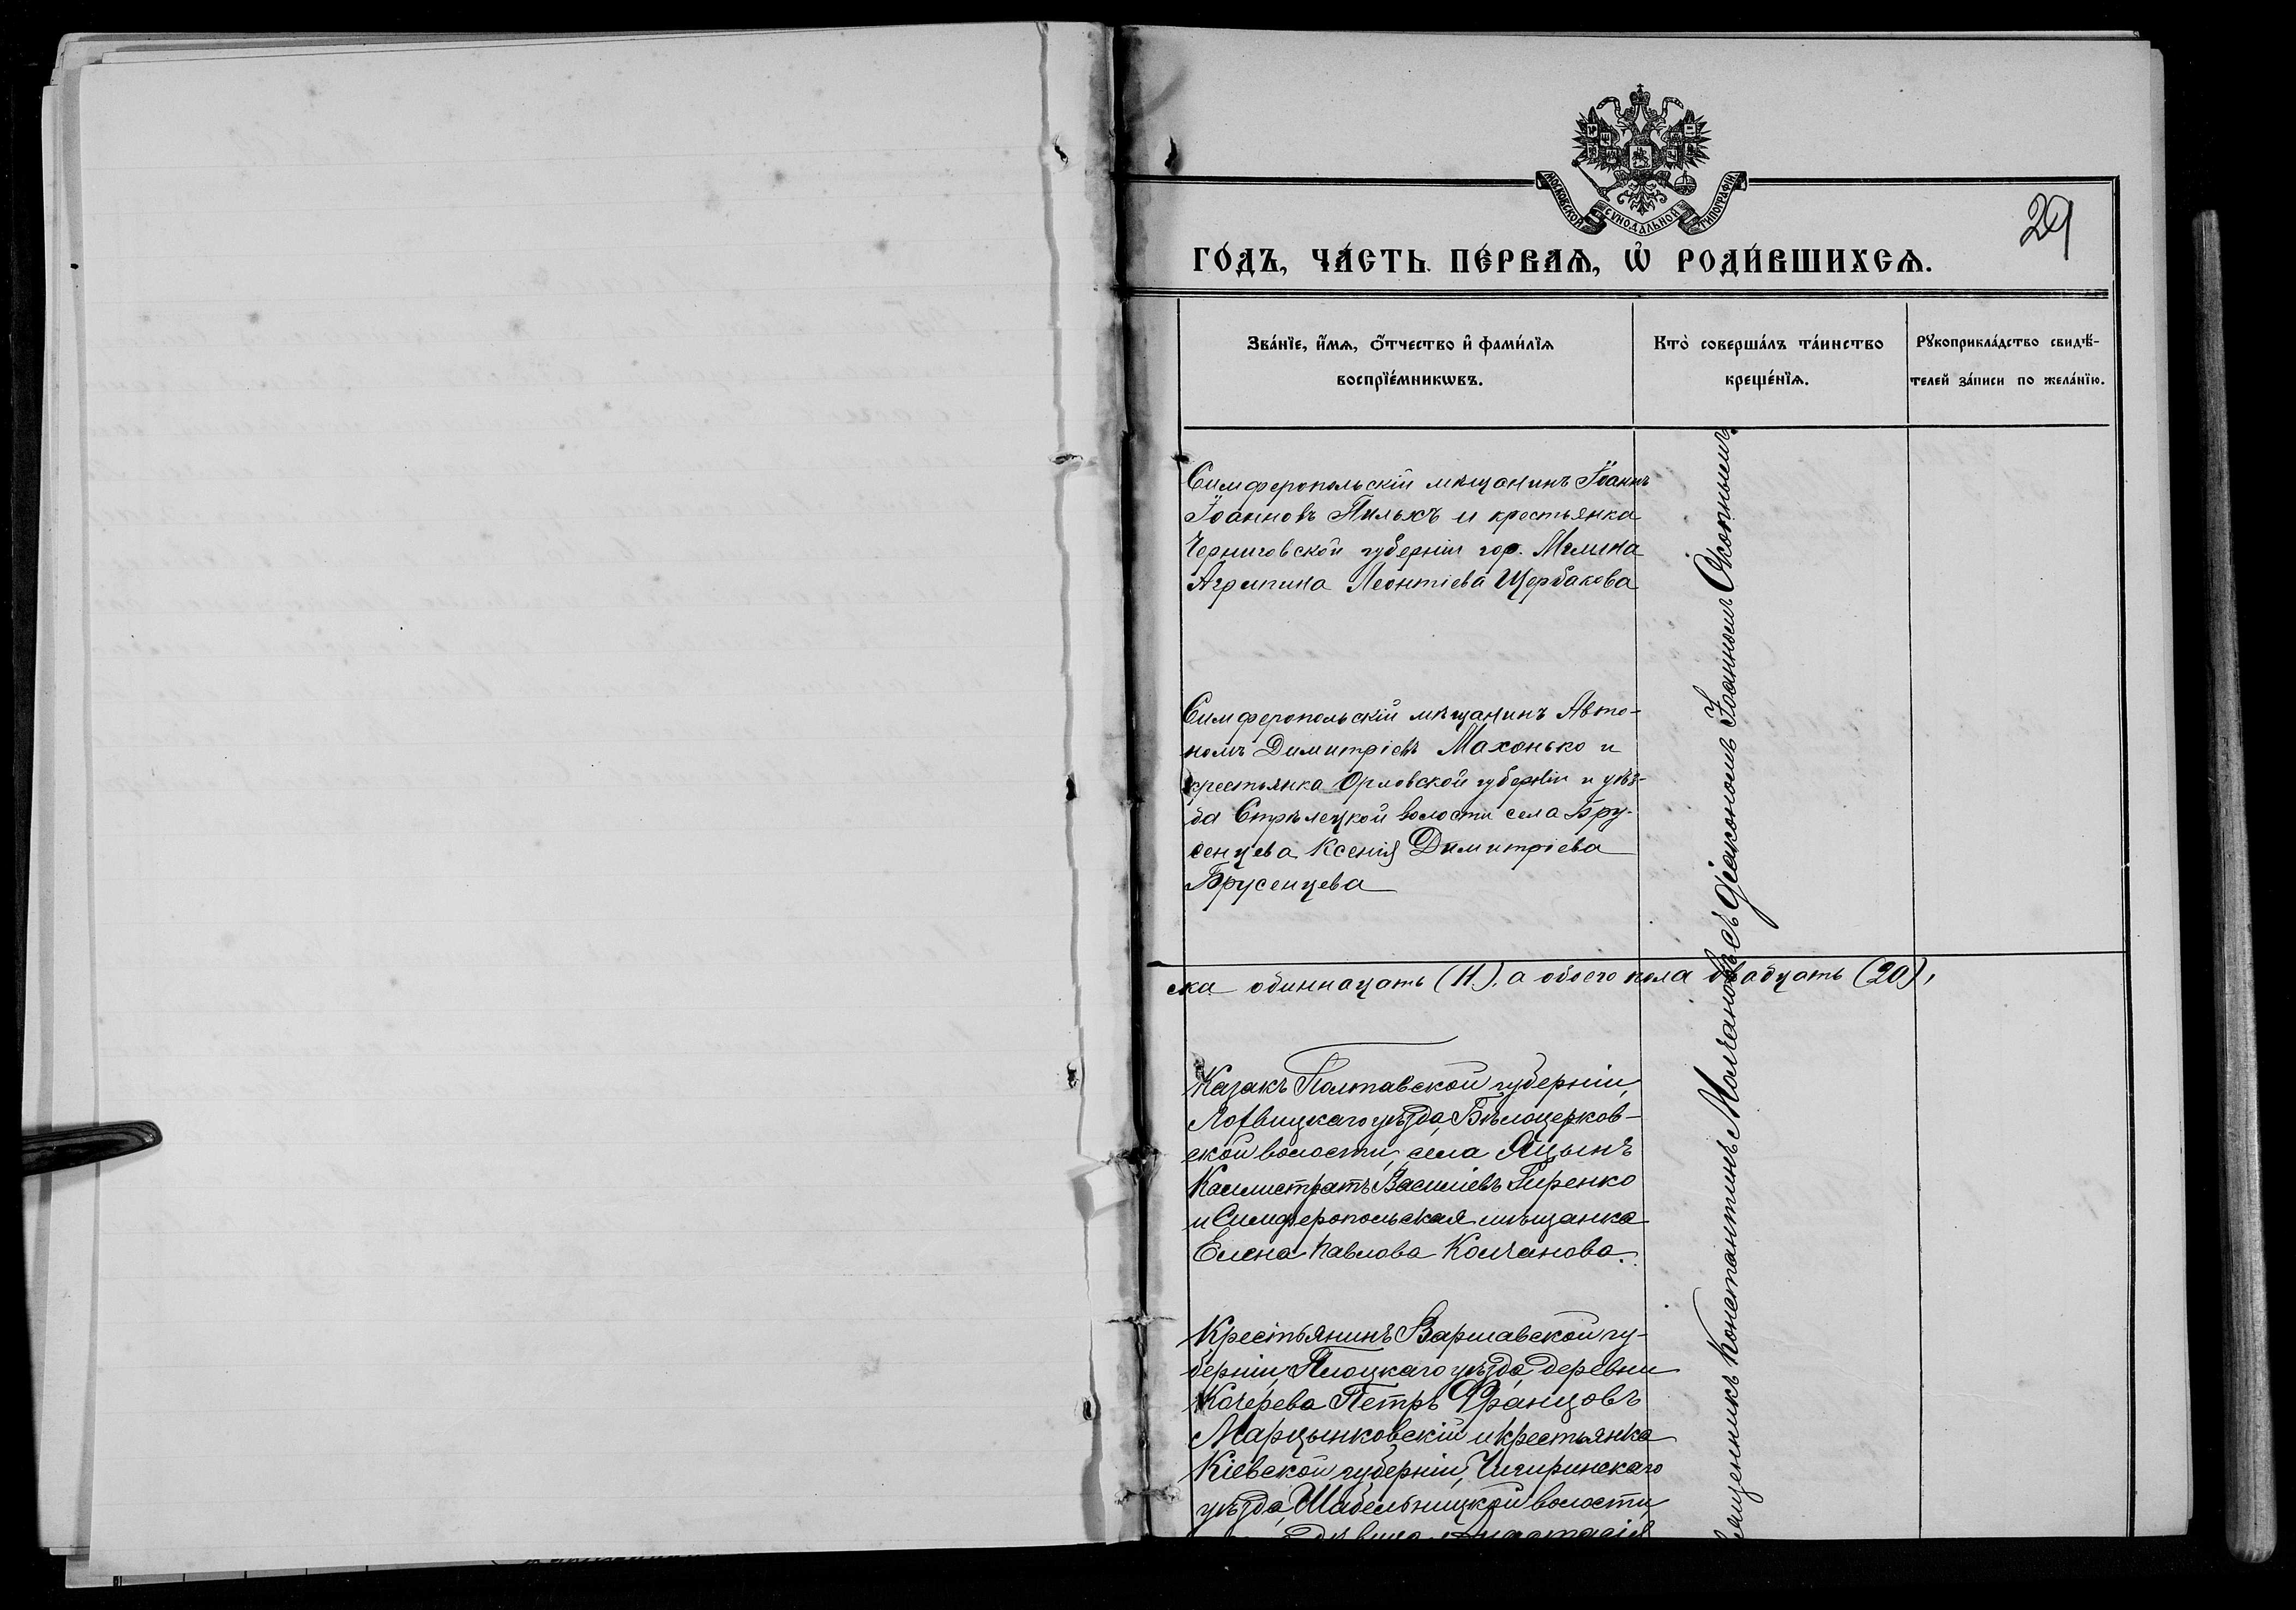 МОСКОВСКОЙ СѴНОДАЛЬНОЙ ТИПОГРАФІИ
29
ГО́ДЪ, ЧА́СТЬ ПЕ́РВАѦ, Ѡ҆ РОДИ́ВШИХСѦ.
Зва́нїе, и҆́мѧ, ѻ҆́тчество и҆ фами́лїѧ
воспрїе́мникѡвъ.
Кто̀ соверша́лъ та́инство
креще́нїѧ.
Рꙋкоприкла́дство свидѣ́-
телей за́писи по жела́нїю.
Симферопольскій мѣщанинъ Іоаннъ
Іоанновъ Пильхъ и крестьянка
Черниговской губерніи гор. Мглина
Агрипина Леонтіева Щербакова
Симферопольскій мѣщанинъ Авто-
номъ Димитріевъ Махонько и
крестьянка Орловской губерніи и уѣз-
да Стрѣлецкой волости села Бру-
сенцева Ксенія Димитріева
Брусенцева
ска одиннацать (11), а обоего пола двадцать (20),
Казакъ Полтавской губерніи,
Лохвицкаго уѣзда, Бѣлоцерков-
ской волости, села Яцынъ
Каллистратъ Василіевъ Гиренко
и Симферопольская мѣщанка
Елена Павлова Колчанова.
Крестьянинъ Варшавской гу-
берніи, Плоцкаго уѣзда, деревни
Кочерева Петръ Францовъ
Марцынковскій и крестьянка
Кіевской губерніи, Чигиринскаго
уѣзда, Шабельницкой волости,
Анастасія
Константинъ Молчановъ съ діакономъ Іоанномъ Окопнымъ